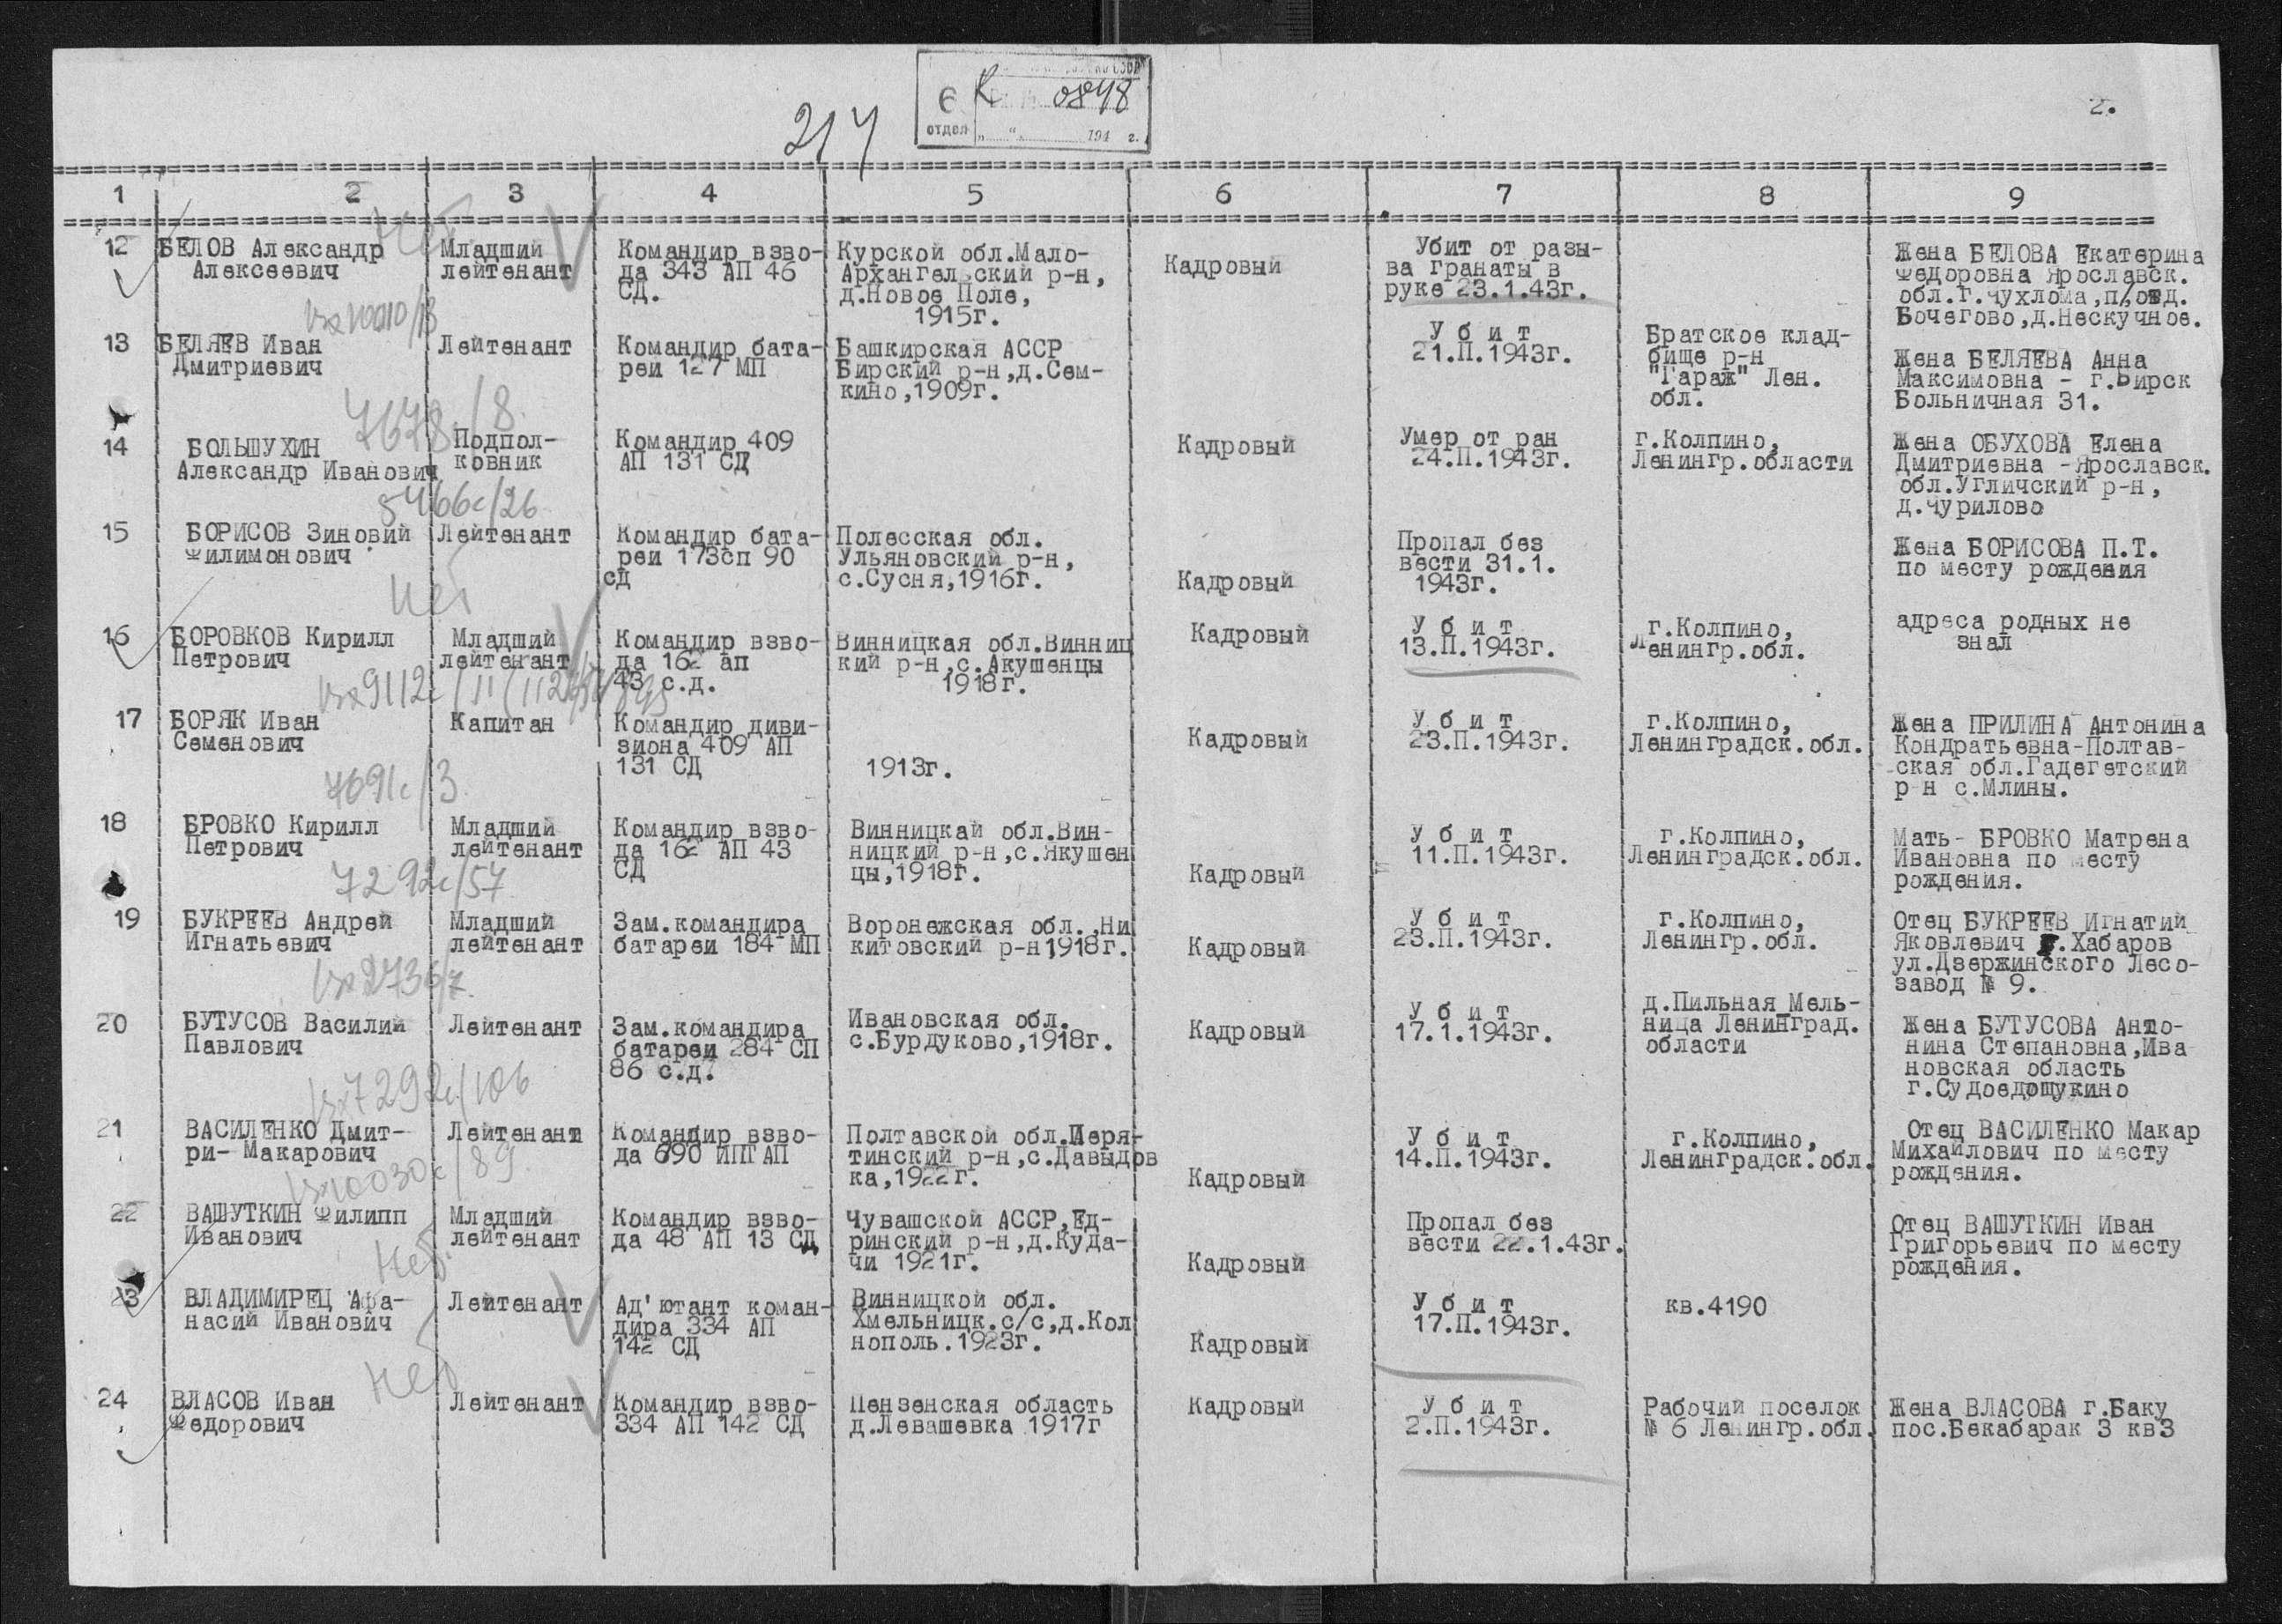 217
6 К 0848
отдел " " 194 г.
2.
1 2 3 4 5 6 7 8 9
12 БЕЛОВ Александр
Алексеевич
Младший
лейтенант
Командир взво-
да 343 АП 46
СД.
Курской обл.Мало-
Архангельский р-н,
д.Новое Поле,
1915г.
Кадровый
Убит от разы-
ва гранаты в
руке 23.1.43г.
Жена БЕЛОВА Екатерина
Федоровна Ярославск.
обл.г.Чухлома,п/отд.
Бочегово,д.Нескучное.
Нет
вх10010/13
13 БЕЛЯЕВ Иван
Дмитриевич
Лейтенант
Командир бата-
реи 127 МП
Башкирская АССР
Бирский р-н,д.Сем-
кино,1909г.
У б и т
21.П.1943г.
Братское клад-
бище р-н
"Гараж" Лен.
обл.
Жена БЕЛЯЕВА Анна
Максимовна - г.Бирск
Больничная 31.
7678с/8.
14 БОЛЬШУХИН
Александр Иванович
Подпол-
ковник
Командир 409
АП 131 СД
Кадровый
Умер от ран
24.П.1943г.
г.Колпино,
Ленингр.области
Жена ОБУХОВА Елена
Дмитриевна -Ярославск.
обл.Угличский р-н,
д.Чурилово
5466с/26
15 БОРИСОВ Зиновий
Филимонович
Лейтенант
Командир бата-
реи 173сп 90
сд
Полесская обл.
Ульяновский р-н,
с.Сусня,1916г.
Кадровый
Пропал без
вести 31.1.
1943г.
Жена БОРИСОВА П.Т.
по месту рождения
Нет
16 БОРОВКОВ Кирилл
Петрович
Младший
лейтенант
Командир взво-
да 162 ап
43 с.д.
Винницкая обл.Винниц
кий р-н,с.Акушенцы
1918г.
Кадровый
У б и т
13.П.1943г.
г.Колпино,
Ленингр.обл.
адреса родных не
знал
вх9112с/11
17 БОРЯК Иван
Семенович
Капитан
Командир диви-
зиона 409 АП
131 СД
1913г.
Кадровый
У б и т
23.П.1943г.
г.Колпино,
Ленинградск.обл.
Жена ПРИЛИНА Антонина
Кондратьевна-Полтав-
ская обл.Гадегетский
р-н с.Млины.
7691с/3
18 БРОВКО Кирилл
Петрович
Младший
лейтенант
Командир взво-
да 162 АП 43
СД
Винницкай обл.Вин-
ницкий р-н,с.Якушен
цы,1918г.
Кадровый
У б и т
11.П.1943г.
г.Колпино,
Ленинградск.обл.
Мать- БРОВКО Матрена
Ивановна по месту
рождения.
7292с/57
19 БУКРЕЕВ Андрей
Игнатьевич
Младший
лейтенант
Зам.командира
батареи 184 МП
Воронежская обл.,Ни
китовский р-н1918г.
Кадровый
У б и т
23.П.1943г.
г.Колпино,
Ленингр.обл.
Отец БУКРЕЕВ Игнатий
Яковлевич г.Хабаров
ул.Дзержинского Лесо-
завод № 9.
20 БУТУСОВ Василий
Павлович
Лейтенант
Зам.командира
батареи 284 СП
86 с.д.
Ивановская обл.
с.Бурдуково,1918г.
Кадровый
У б и т
17.1.1943г.
д.Пильная Мель-
ница Ленинград.
области
Жена БУТУСОВА Анто-
нина Степановна,Ива
новская область
г.Судоедощукино
вх7292с/106
21 ВАСИЛЕНКО Дмит-
ри- Макарович
Лейтенант
Командир взво-
да 690 ИПТАП
Полтавской обл.Перя-
тинский р-н,с.Давыдов
ка,1922г.
Кадровый
У б и т
14.П.1943г.
г.Колпино,
Ленинградск.обл.
Отец ВАСИЛЕНКО Макар
Михайлович по месту
рождения.
вх10030с/89
22 ВАШУТКИН Филипп
Иванович
Младший
лейтенант
Командир взво-
да 48 АП 13 СД
Чувашской АССР,Ед-
ринский р-н,д.Куда-
чи 1921г.
Кадровый
Пропал без
вести 22.1.43г.
Отец ВАШУТКИН Иван
Григорьевич по месту
рождения.
Нет.
23 ВЛАДИМИРЕЦ Афа-
насий Иванович
Лейтенант
Ад'ютант коман-
дира 334 АП
142 СД
Винницкой обл.
Хмельницк.с/с,д.Кол
нополь.1923г.
Кадровый
У б и т
17.П.1943г.
кв.4190
Нет
24 ВЛАСОВ Иван
Федорович
Лейтенант
Командир взво-
334 АП 142 СД
Пензенская область
д.Левашевка 1917г
Кадровый
У б и т
2.П.1943г.
Рабочий поселок
№ 6 Ленингр.обл.
Жена ВЛАСОВА г.Баку
пос.Бекабарак 3 кв3